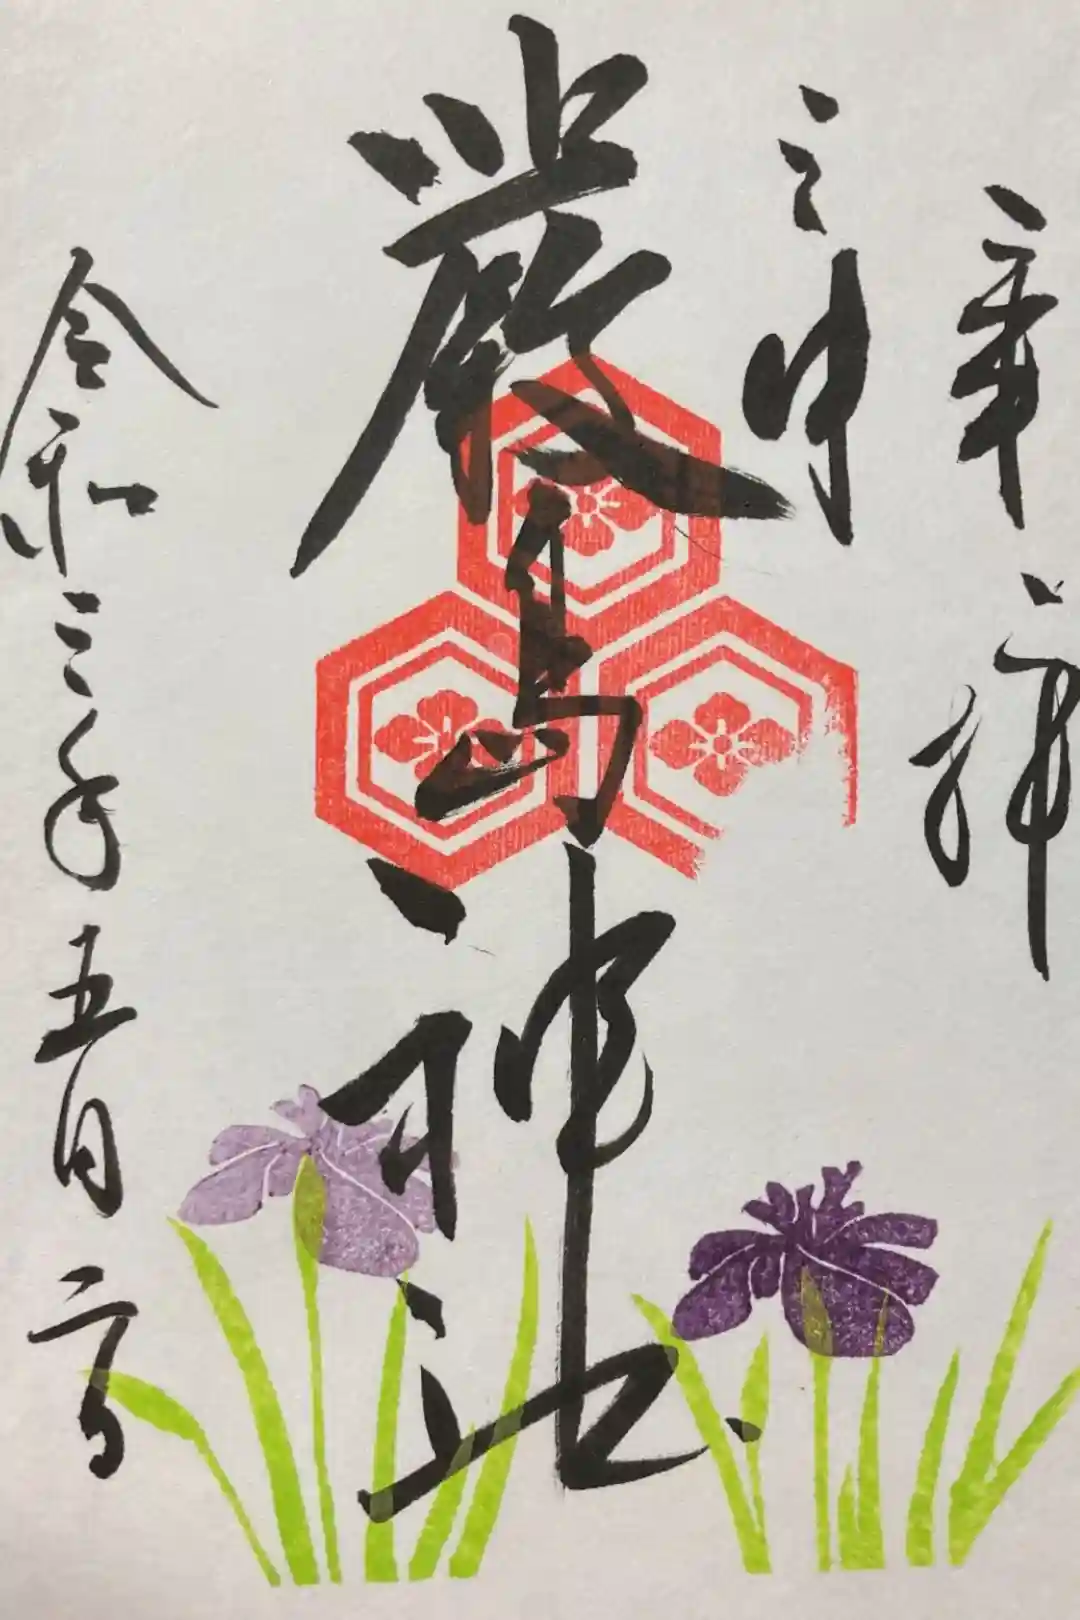 奉拝
厳島神社
令和三年五月